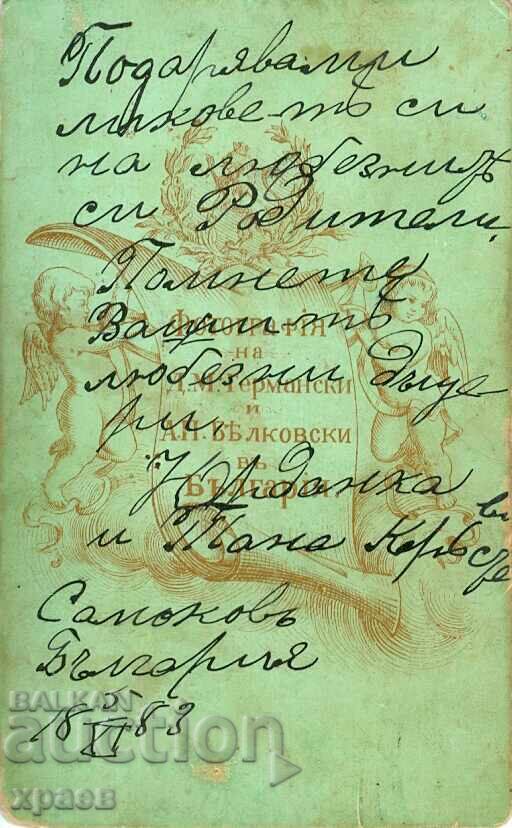 Подарявам ми
ликове-тѣ си
на любезнитѣ
си Родители,
Помнете
Вашитѣ
любезни дъще
ри
Юрданка
и Тана
Самоковъ
България
18 5/VI 83
Фотография
на
Д. М. Германски
и
А. П. Бѣлковски
въ
България
BALKAN
auction
храев